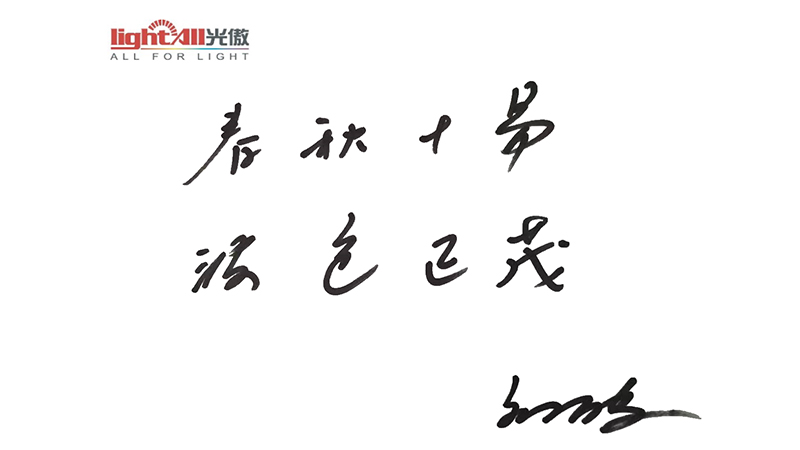 lightAll光傲
ALL FOR LIGHT
春秋十易
波色正茂